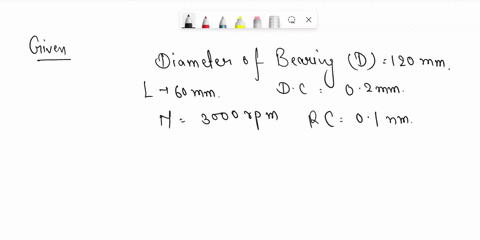 Given
Diameter of Bearing (D) = 120 mm.
L → 60 mm. D.C = 0.2 mm.
N = 3000 rpm RC = 0.1 mm.